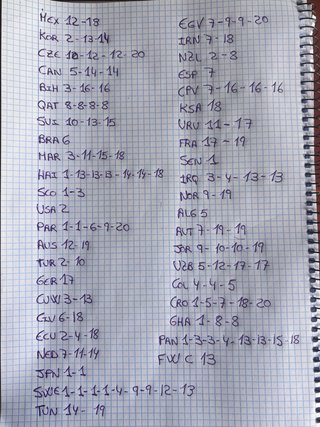 MEX 12-18
KOR 2-13-14
CZE 10-12-12-20
CAN 5-14-14
BIH 3-16-16
QAT 8-8-8-8
SUI 10-13-15
BRA 6
MAR 3-11-15-18
HAI 1-13-13-13-14-14-18
SCO 1-3
USA 2
PAR 1-1-6-9-20
AUS 12-19
TUR 2-10
GER 17
CUW 3-13
CIV 6-18
ECU 2-4-18
NED 7-11-14
JPN 1-1
SWE 1-1-1-1-4-9-9-12-13
TUN 14-19
EGY 7-9-9-20
IRN 7-18
NZL 2-8
ESP 7
CPV 7-16-16-16
KSA 18
URU 11-17
FRA 17-19
SEN 1
IRQ 3-4-13-13
NOR 9-19
ALG 5
AUT 7-19-19
JOR 9-10-10-19
UZB 5-12-17-17
COL 4-4-5
CRO 1-5-7-18-20
GHA 1-8-8
PAN 1-3-3-4-13-13-15-18
FWC 13